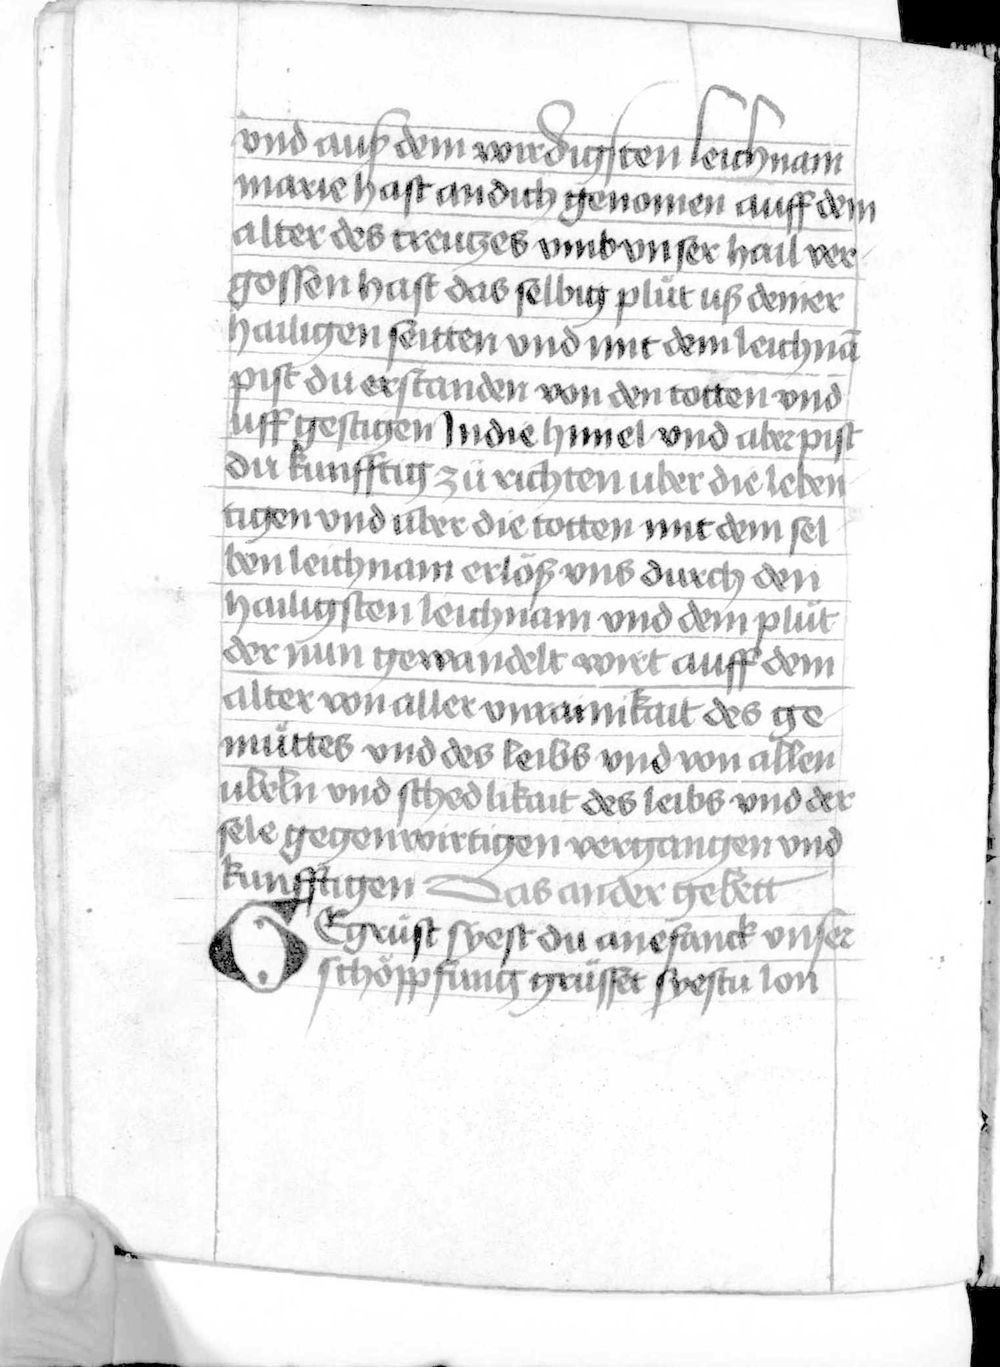 vnd auß dem wirdigsten leichnam
marie hast an dich genomen auff dem
alter des creutzes vmb vnser hail ver
gossen hast das selbig plůt uß deiner
hailigen seitten vnd mit dem leichnā
pist du erstanden von den totten vnd
uff gestigen In die himel vnd aber pist
du kunfftig zů richten uber die leben
tigen vnd uber die totten mit dem sel
ben leichnam erlöß vns durch den
hailigsten leichnam vnd dem plůt
der nun gewandelt wirt auff dem
alter von aller vnrainikait des ge
můttes vnd des leibs vnd von allen
ubeln vnd schedlikait des leibs vnd der
sele gegenwirtigen vergangen vnd
kunfftigen Das ander gebett
GEgrüst syest du anefanck vnser
schöppfung grüsset syestu lon